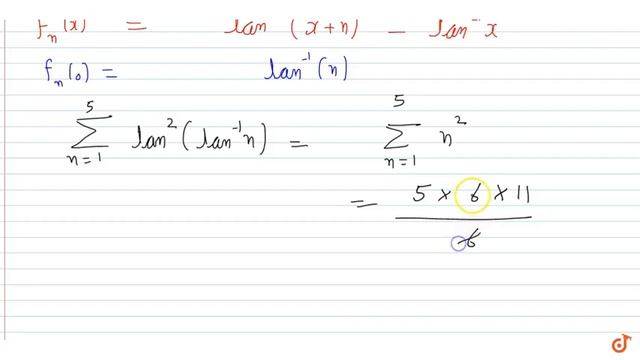 f_n(x) = tan (x+n) - tan⁻ x
f_n(0) = tan⁻¹(n)
5 ∑ n=1 tan²(tan⁻¹n) = 5 ∑ n=1 n²
= 5 × 6 × 11 / 6